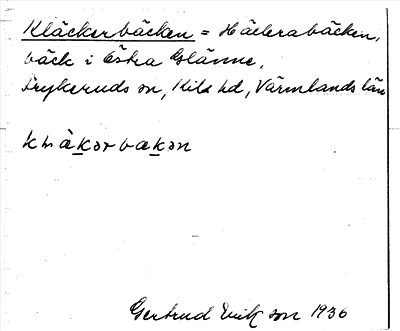 Kläckerbäcken = Häckrabäcken,
bäck i Östra Glänne,
Frykeruds sn, Kils hd, Värmlands län
Gertrud Eriksson 1936